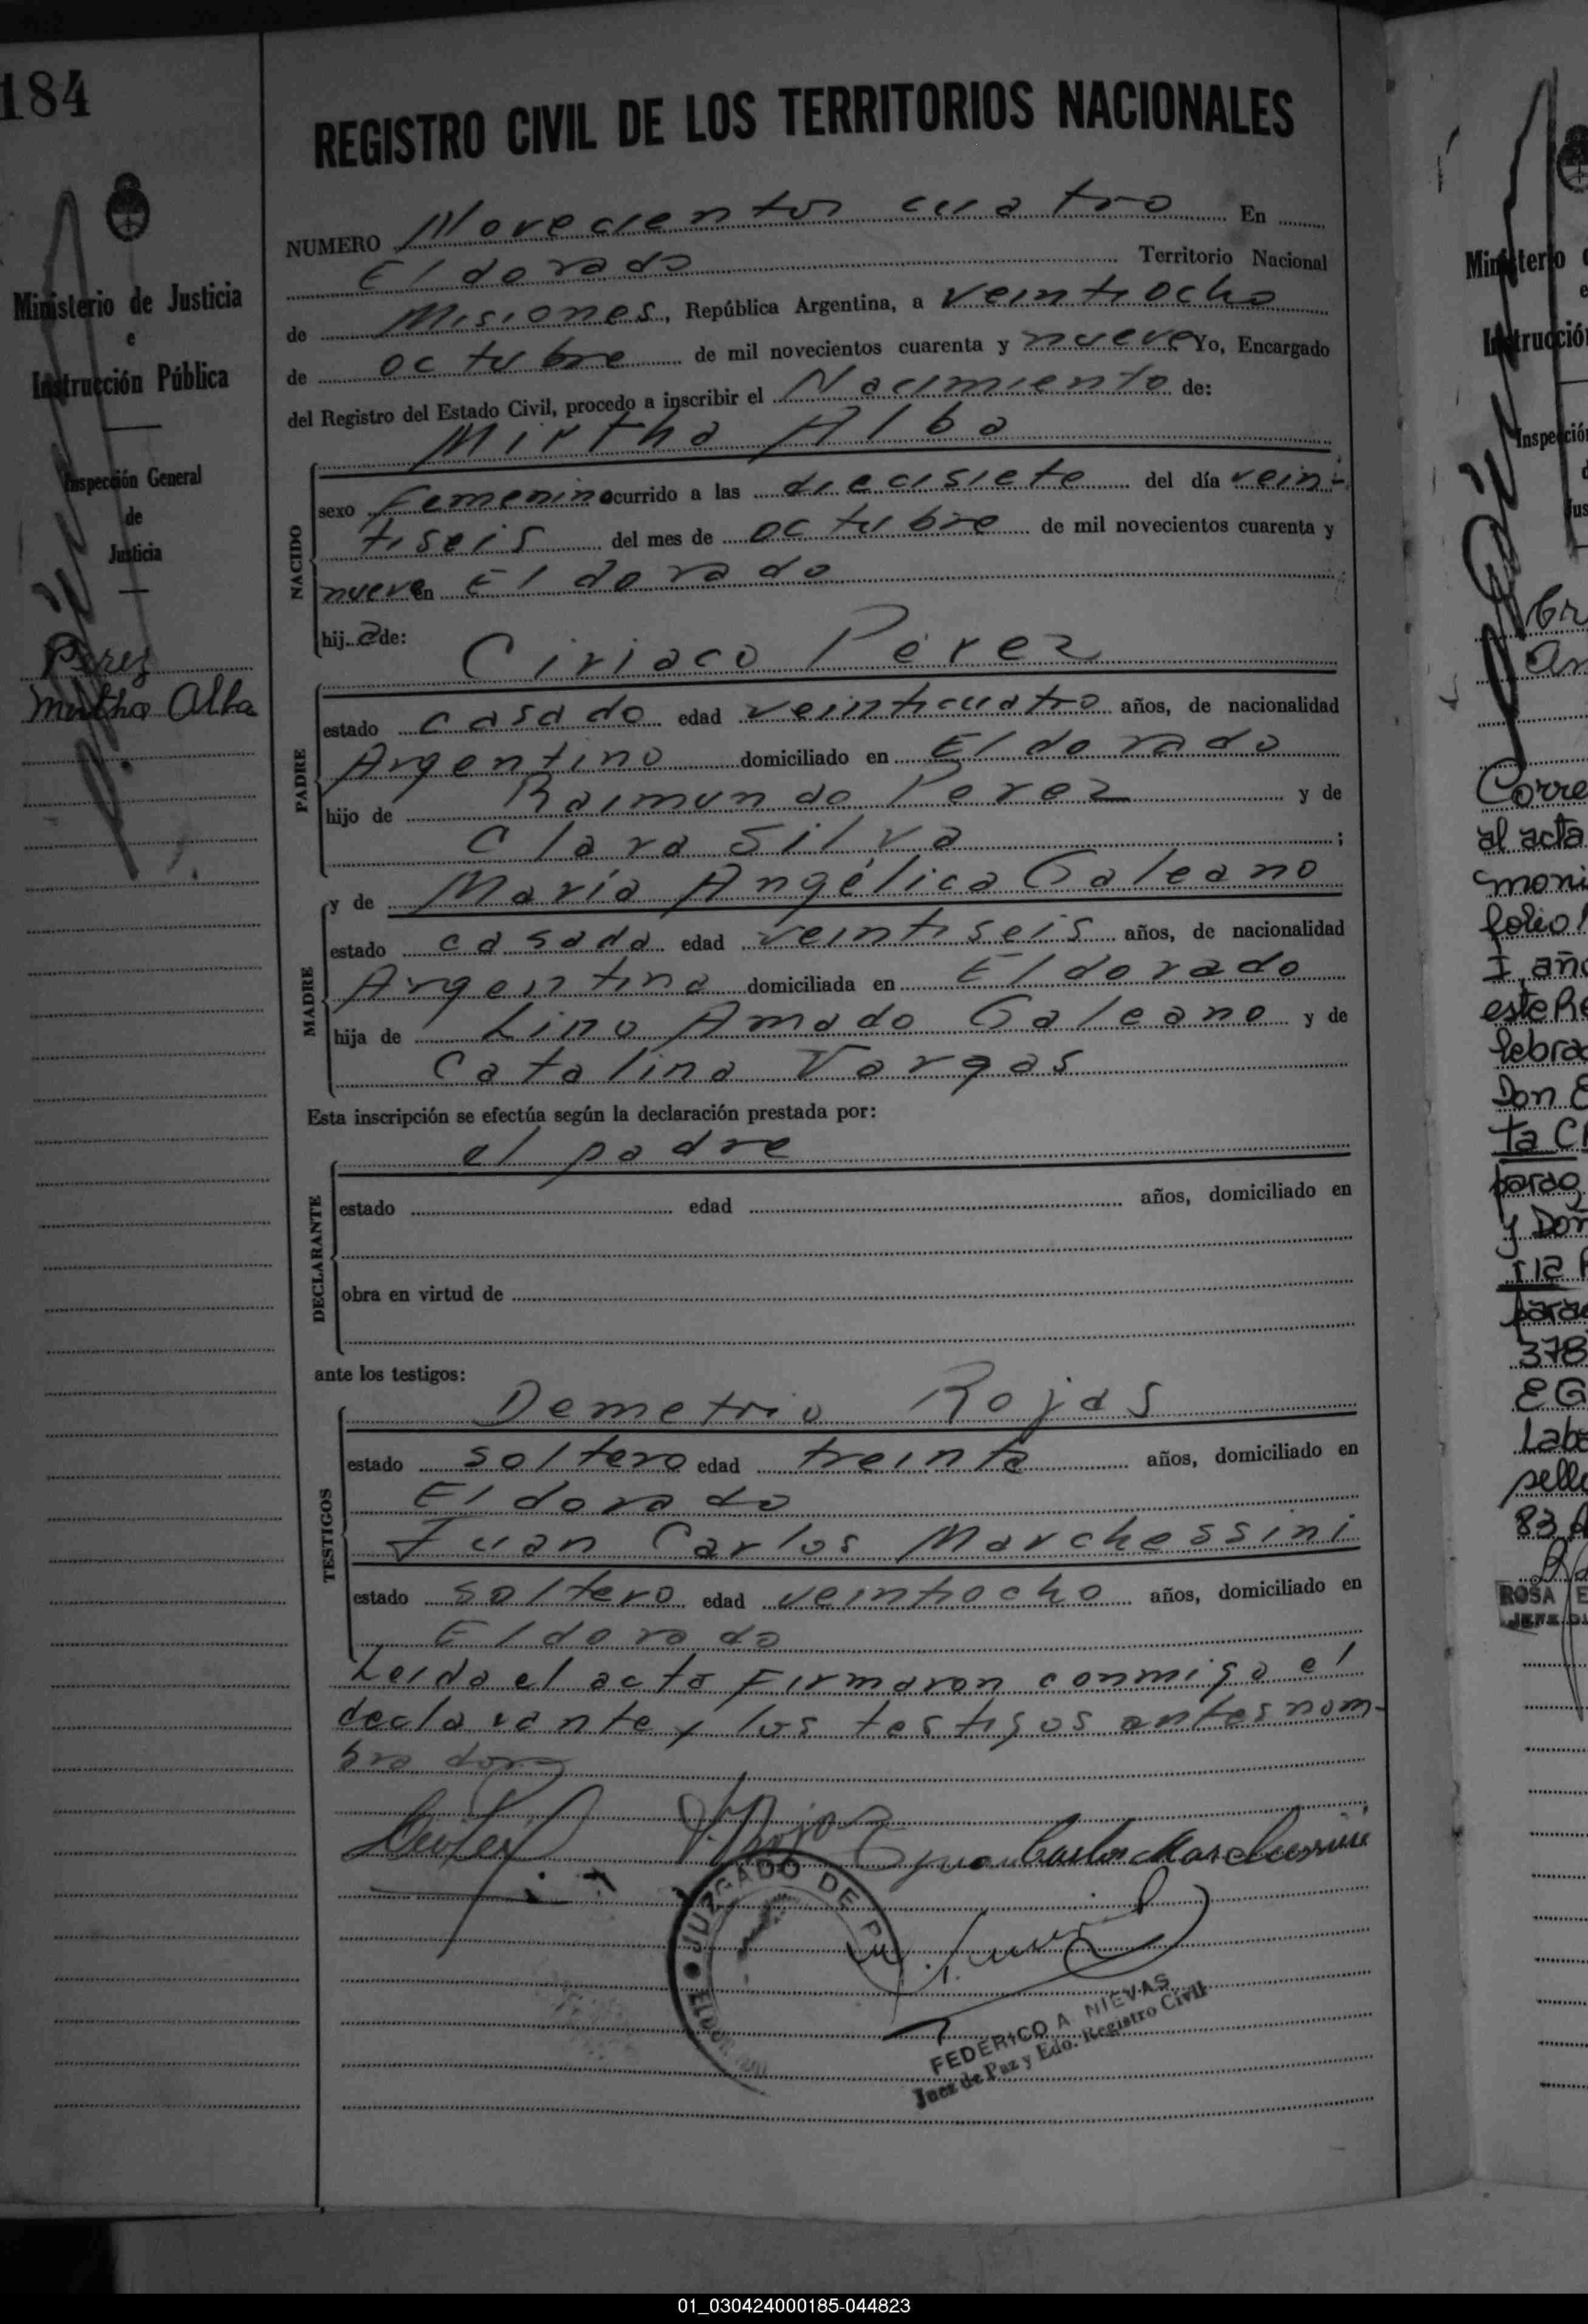 184
Ministerio de Justicia
e
Instrucción Pública
Inspección General
de
Justicia
Perez
Mirtha Alba
REGISTRO CIVIL DE LOS TERRITORIOS NACIONALES
NUMERO Novecientos cuatro En
Eldorado Territorio Nacional
de Misiones, República Argentina, a veintiocho
de octubre de mil novecientos cuarenta y nueve Yo, Encargado
del Registro del Estado Civil, procedo a inscribir el Nacimiento de:
Mirtha Alba
NACIDO
sexo femenino ocurrido a las diecisiete del día vein-
tiseis del mes de octubre de mil novecientos cuarenta y
nueve en Eldorado
hij a de: Ciriaco Pérez
PADRE
estado casado edad veinticuatro años, de nacionalidad
Argentino domiciliado en Eldorado
hijo de Raimundo Perez y de
Clara Silva ;
y de María Angélica Galeano
MADRE
estado casada edad veintiseis años, de nacionalidad
Argentina domiciliada en Eldorado
hija de Lino Amado Galeano y de
Catalina Vargas
Esta inscripción se efectúa según la declaración prestada por:
el padre
DECLARANTE
estado edad años, domiciliado en
obra en virtud de
ante los testigos:
Demetrio Rojas
TESTIGOS
estado soltero edad treinta años, domiciliado en
Eldorado
Juan Carlos Marchessini
estado soltero edad veintiocho años, domiciliado en
Eldorado
Leída el acta Firmaron conmigo el
declarante y los testigos antes nom-
brados
Juan Carlos Marchessini
JUZGADO DE PAZ
FEDERICO A. NIEVAS
Juez de Paz y Edo. Registro Civil
Corre
al acta
folio
I año
este Re
Don E
ta C
y Don
378
ROSA E
01_030424000185-044823